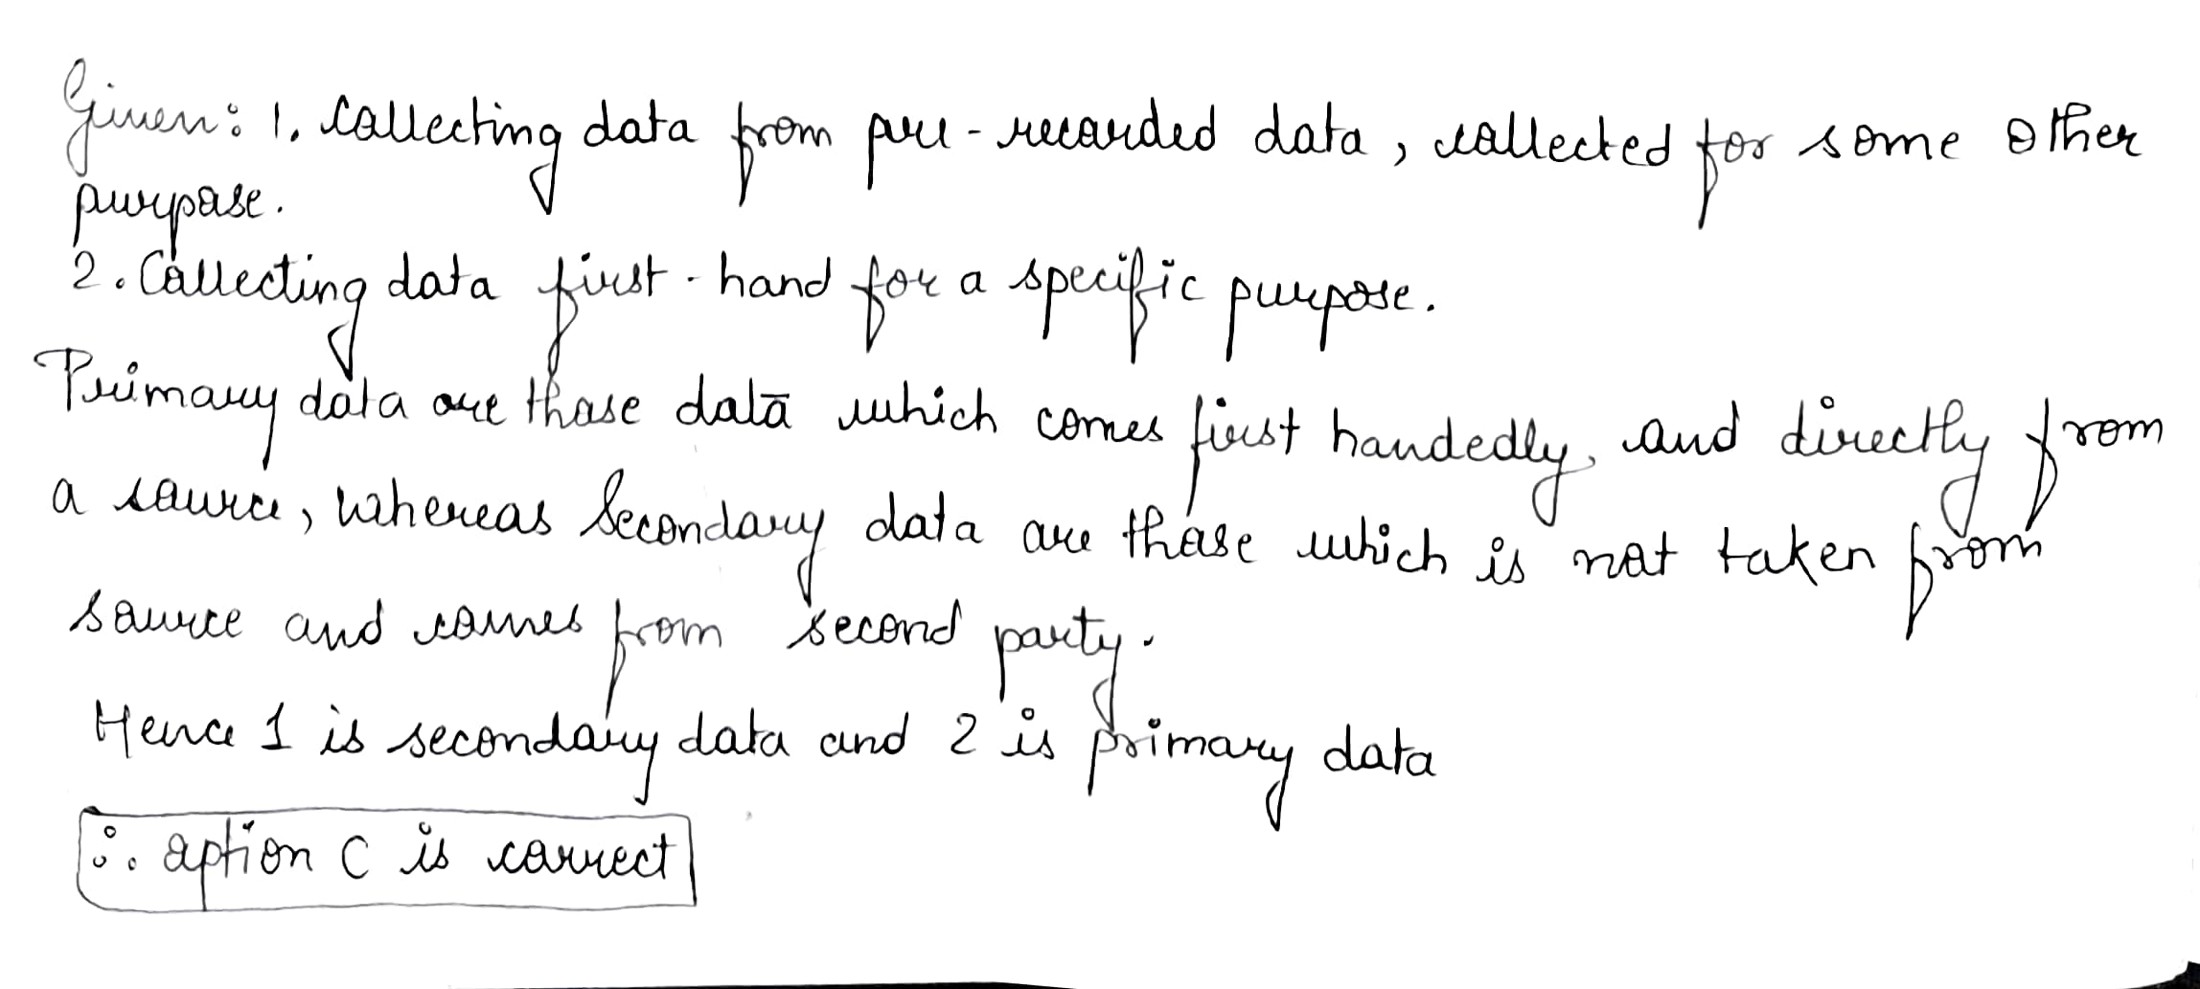 Given: 1. Collecting data from pre-recorded data, collected for some other
purpose.
2. Collecting data first-hand for a specific purpose.
Primary data are those data which comes first handedly, and directly from
a source, whereas Secondary data are those which is not taken from
source and comes from second party.
Hence 1 is secondary data and 2 is primary data
∴ option C is correct